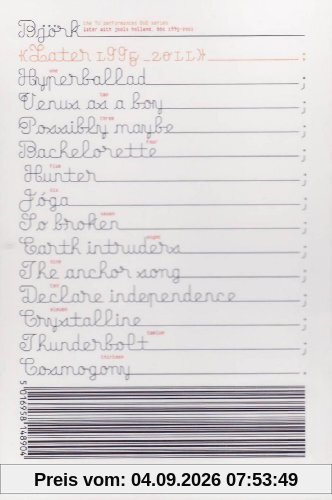 Björk
the TV performances DVD series
later with jools holland. bbc 1995-2011
«Later 1995_2011» :
one
Hyperballad ;
two
Venus as a boy ;
three
Possibly maybe ;
four
Bachelorette ;
five
Hunter ;
six
Jóga ;
seven
So broken ;
eight
Earth intruders ;
nine
The anchor song ;
ten
Declare independence ;
eleven
Crystalline ;
twelve
Thunderbolt ;
thirteen
Cosmogony .
5 016958 148904
Preis vom: 04.09.2026 07:53:49